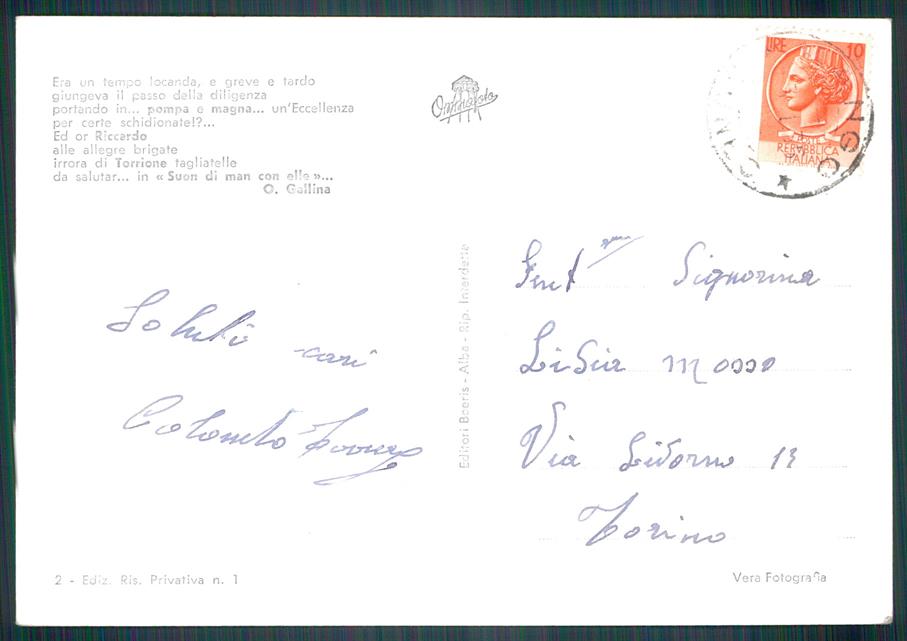 Era un tempo locanda, e greve e tardo
giungeva il passo della diligenza
portando in... pompa e magna... un'Eccellenza
per certe schidionate!?...
Ed or Riccardo
alle allegre brigate
irrora di Torrione tagliatelle
da salutar... in « Suon di man con elle »...
O. Gallina
LIRE 10
POSTE
REPUBBLICA
ITALIANA
Gent
Signorina
Lisia Mosso
Via Livorno 13
Torino
Saluti
cari
Colombo
Editori Boeris - Alba - Rip. Interdetta
2 - Ediz. Ris. Privativa n. 1
Vera Fotografia